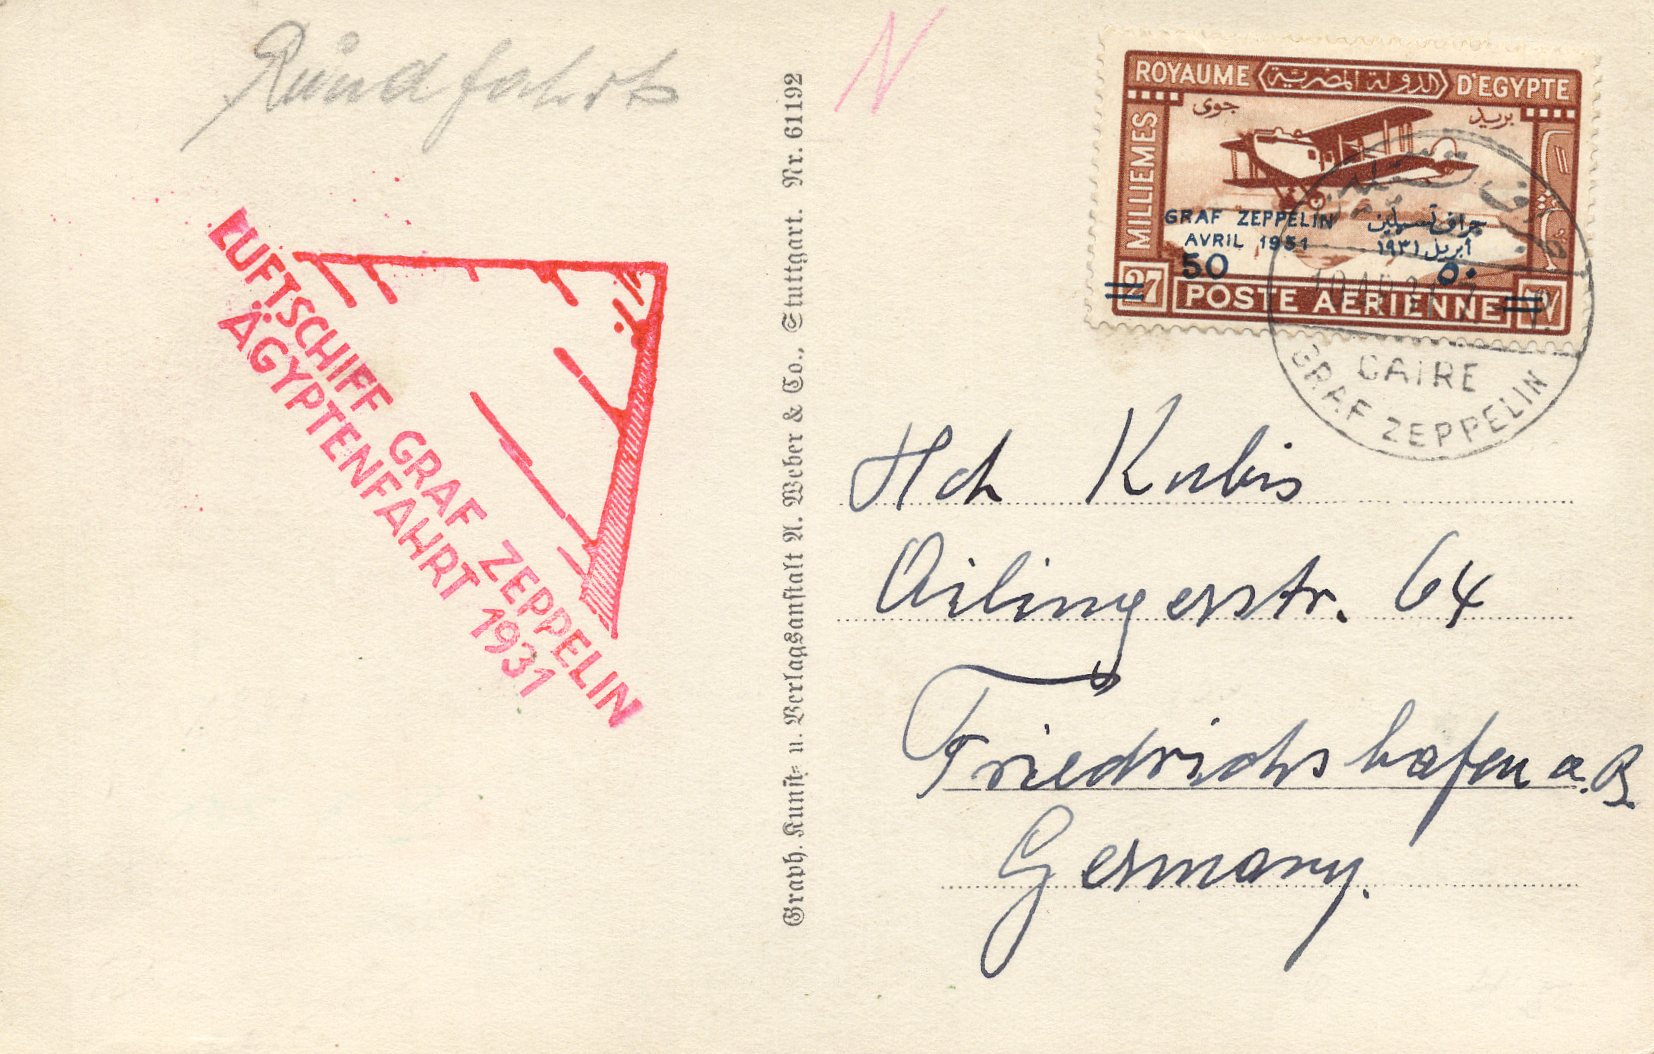 Rundfahrt
N
LUFTSCHIFF GRAF ZEPPELIN
ÄGYPTENFAHRT 1931
Graph. Kunst- u. Verlagsanstalt A. Weber & Co., Stuttgart. Nr. 61192
ROYAUME الدولة المصرية D'EGYPTE
بريد جوى
MILLIEMES
GRAF ZEPPELIN جراف تسبلين
AVRIL 1951 أبريل ١٩٣١
50 ٥٠
27 POSTE AÉRIENNE
CAIRE
GRAF ZEPPELIN
Hch Kubis
Ailingerstr. 64
Friedrichshafen a. B.
Germany.